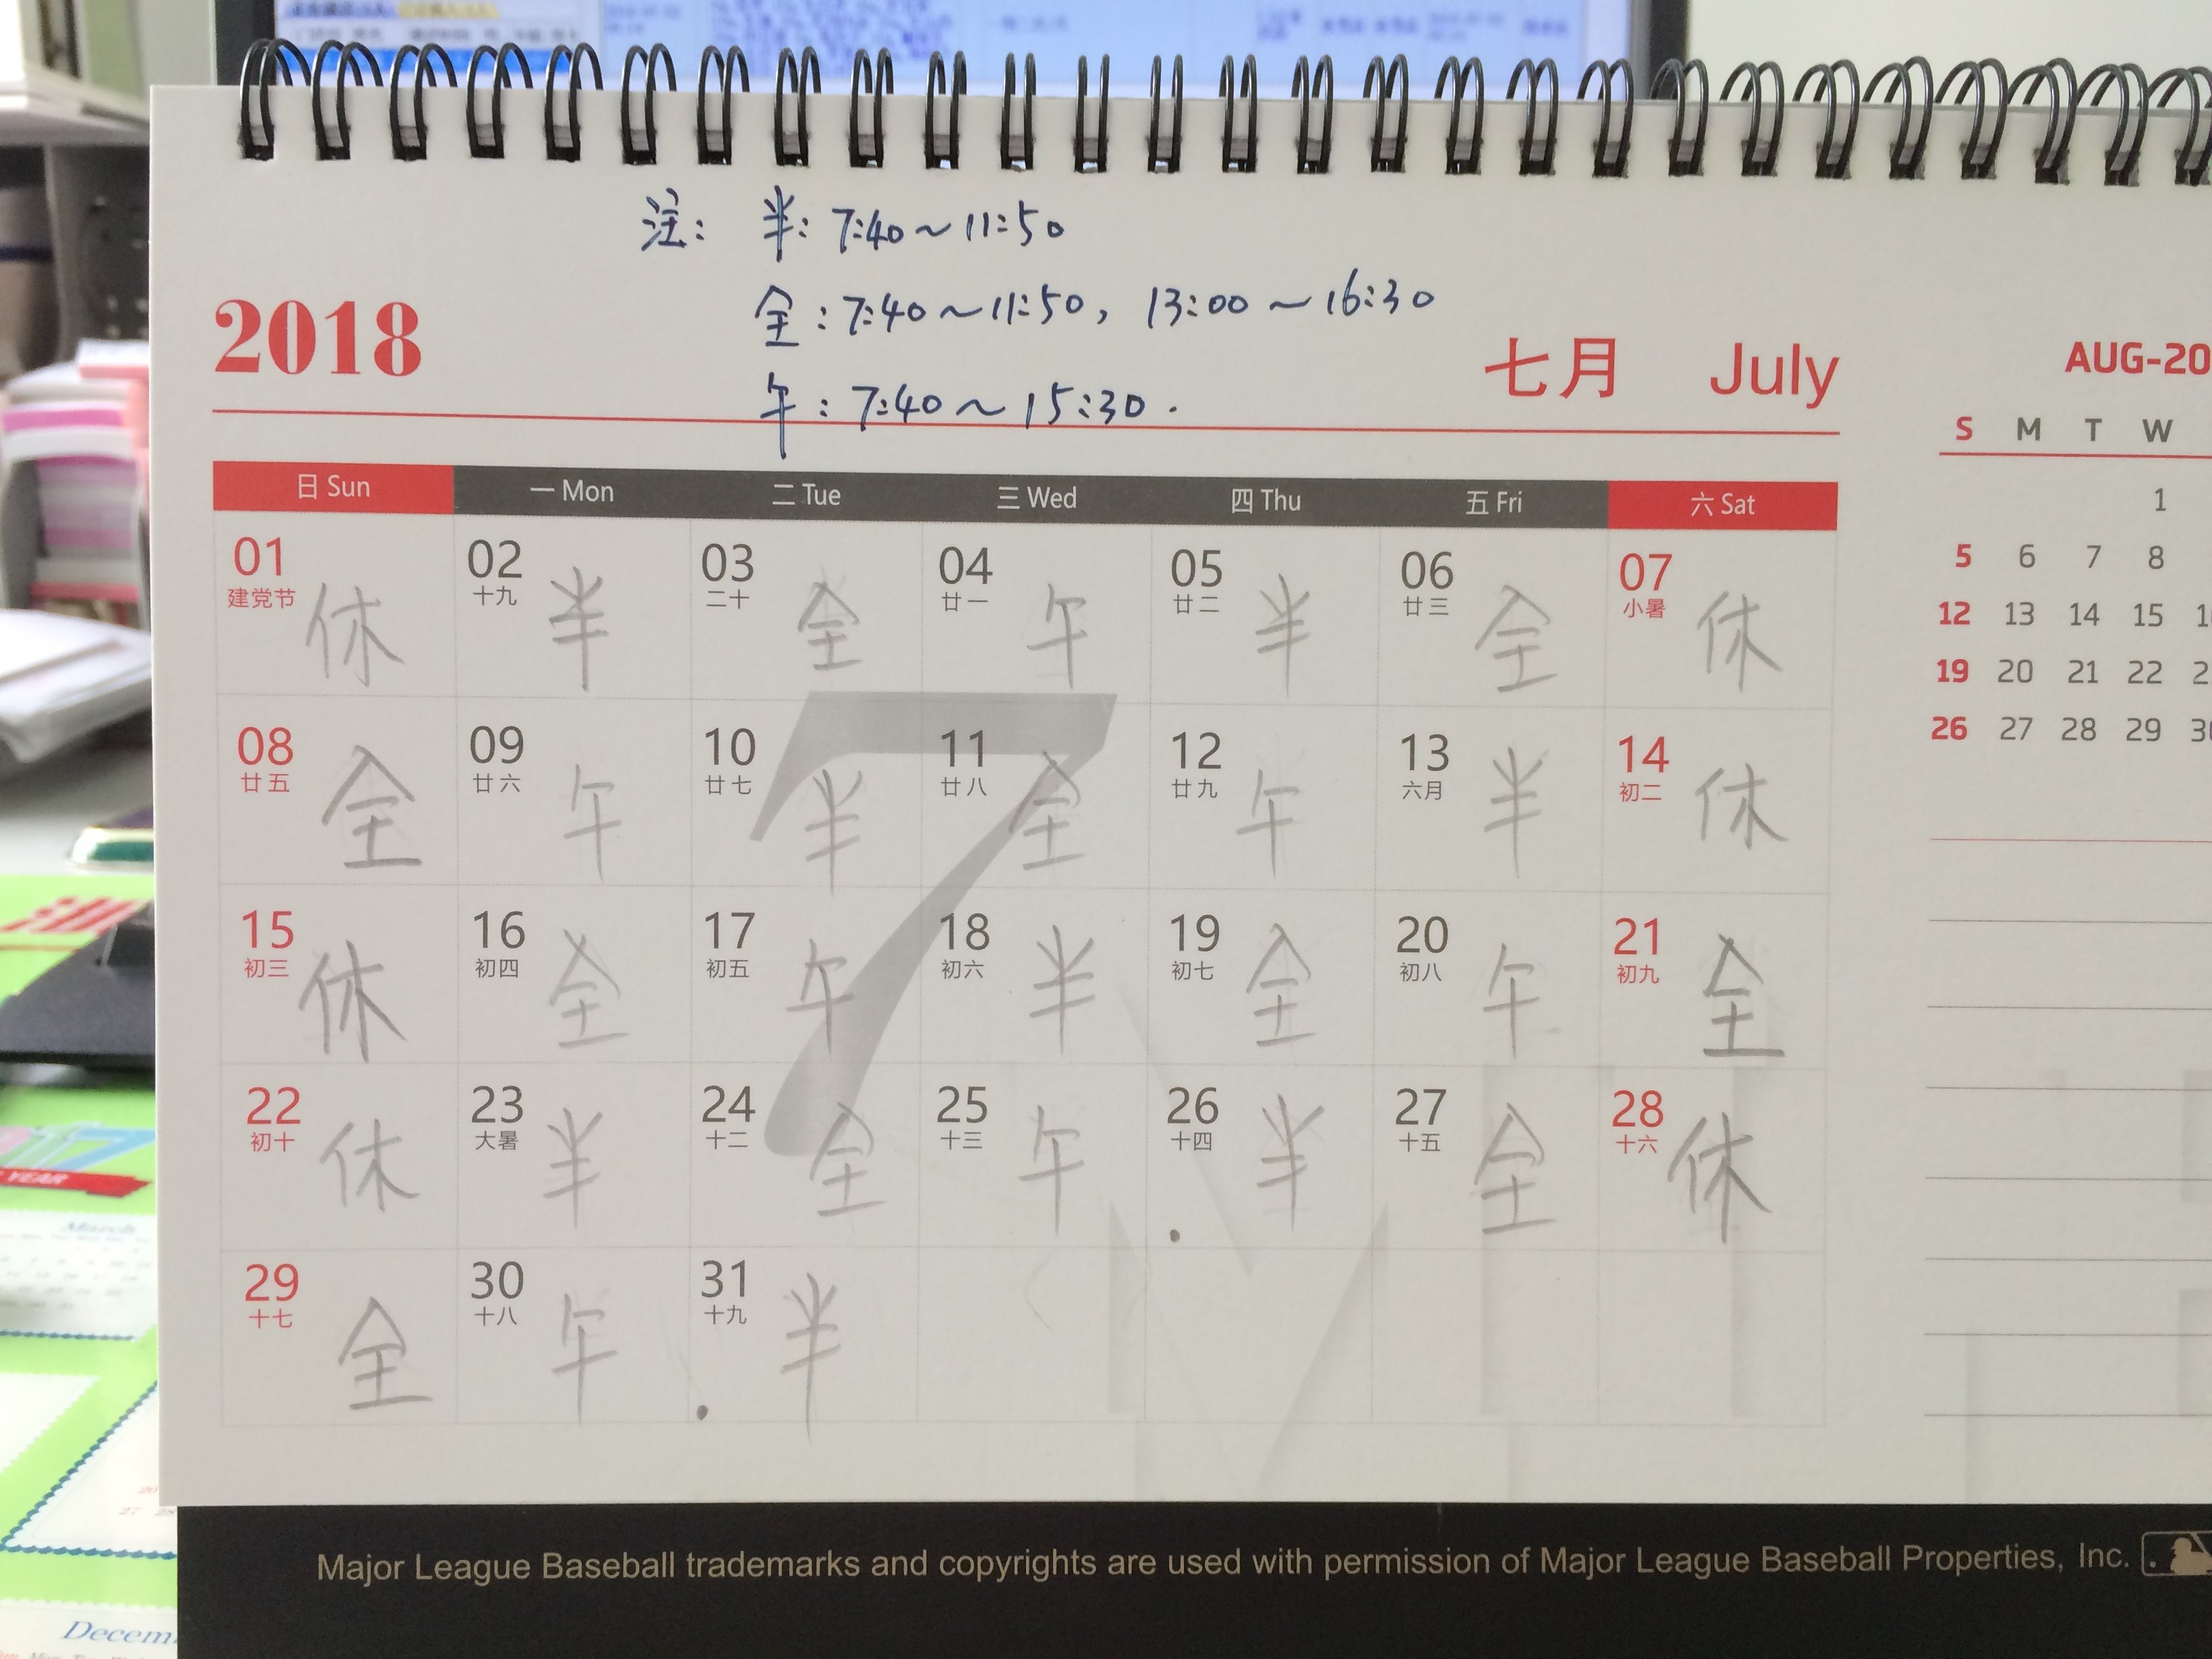 注： 半：7:40～11:50
全：7:40～11:50，13:00～16:30
午：7:40～15:30.
2018
七月 July
日 Sun 一 Mon 二 Tue 三 Wed 四 Thu 五 Fri 六 Sat
01 02 03 04 05 06 07
建党节 十九 二十 廿一 廿二 廿三 小暑
休 半 全 午 半 全 休
08 09 10 11 12 13 14
廿五 廿六 廿七 廿八 廿九 六月 初二
全 午 半 全 午 半 休
15 16 17 18 19 20 21
初三 初四 初五 初六 初七 初八 初九
休 全 午 半 全 午 全
22 23 24 25 26 27 28
初十 大暑 十二 十三 十四 十五 十六
休 半 全 午 半 全 休
29 30 31
十七 十八 十九
全 午 半
7
AUG-20
S M T W
1
5 6 7 8
12 13 14 15
19 20 21 22
26 27 28 29
Major League Baseball trademarks and copyrights are used with permission of Major League Baseball Properties, Inc.
YEAR
March